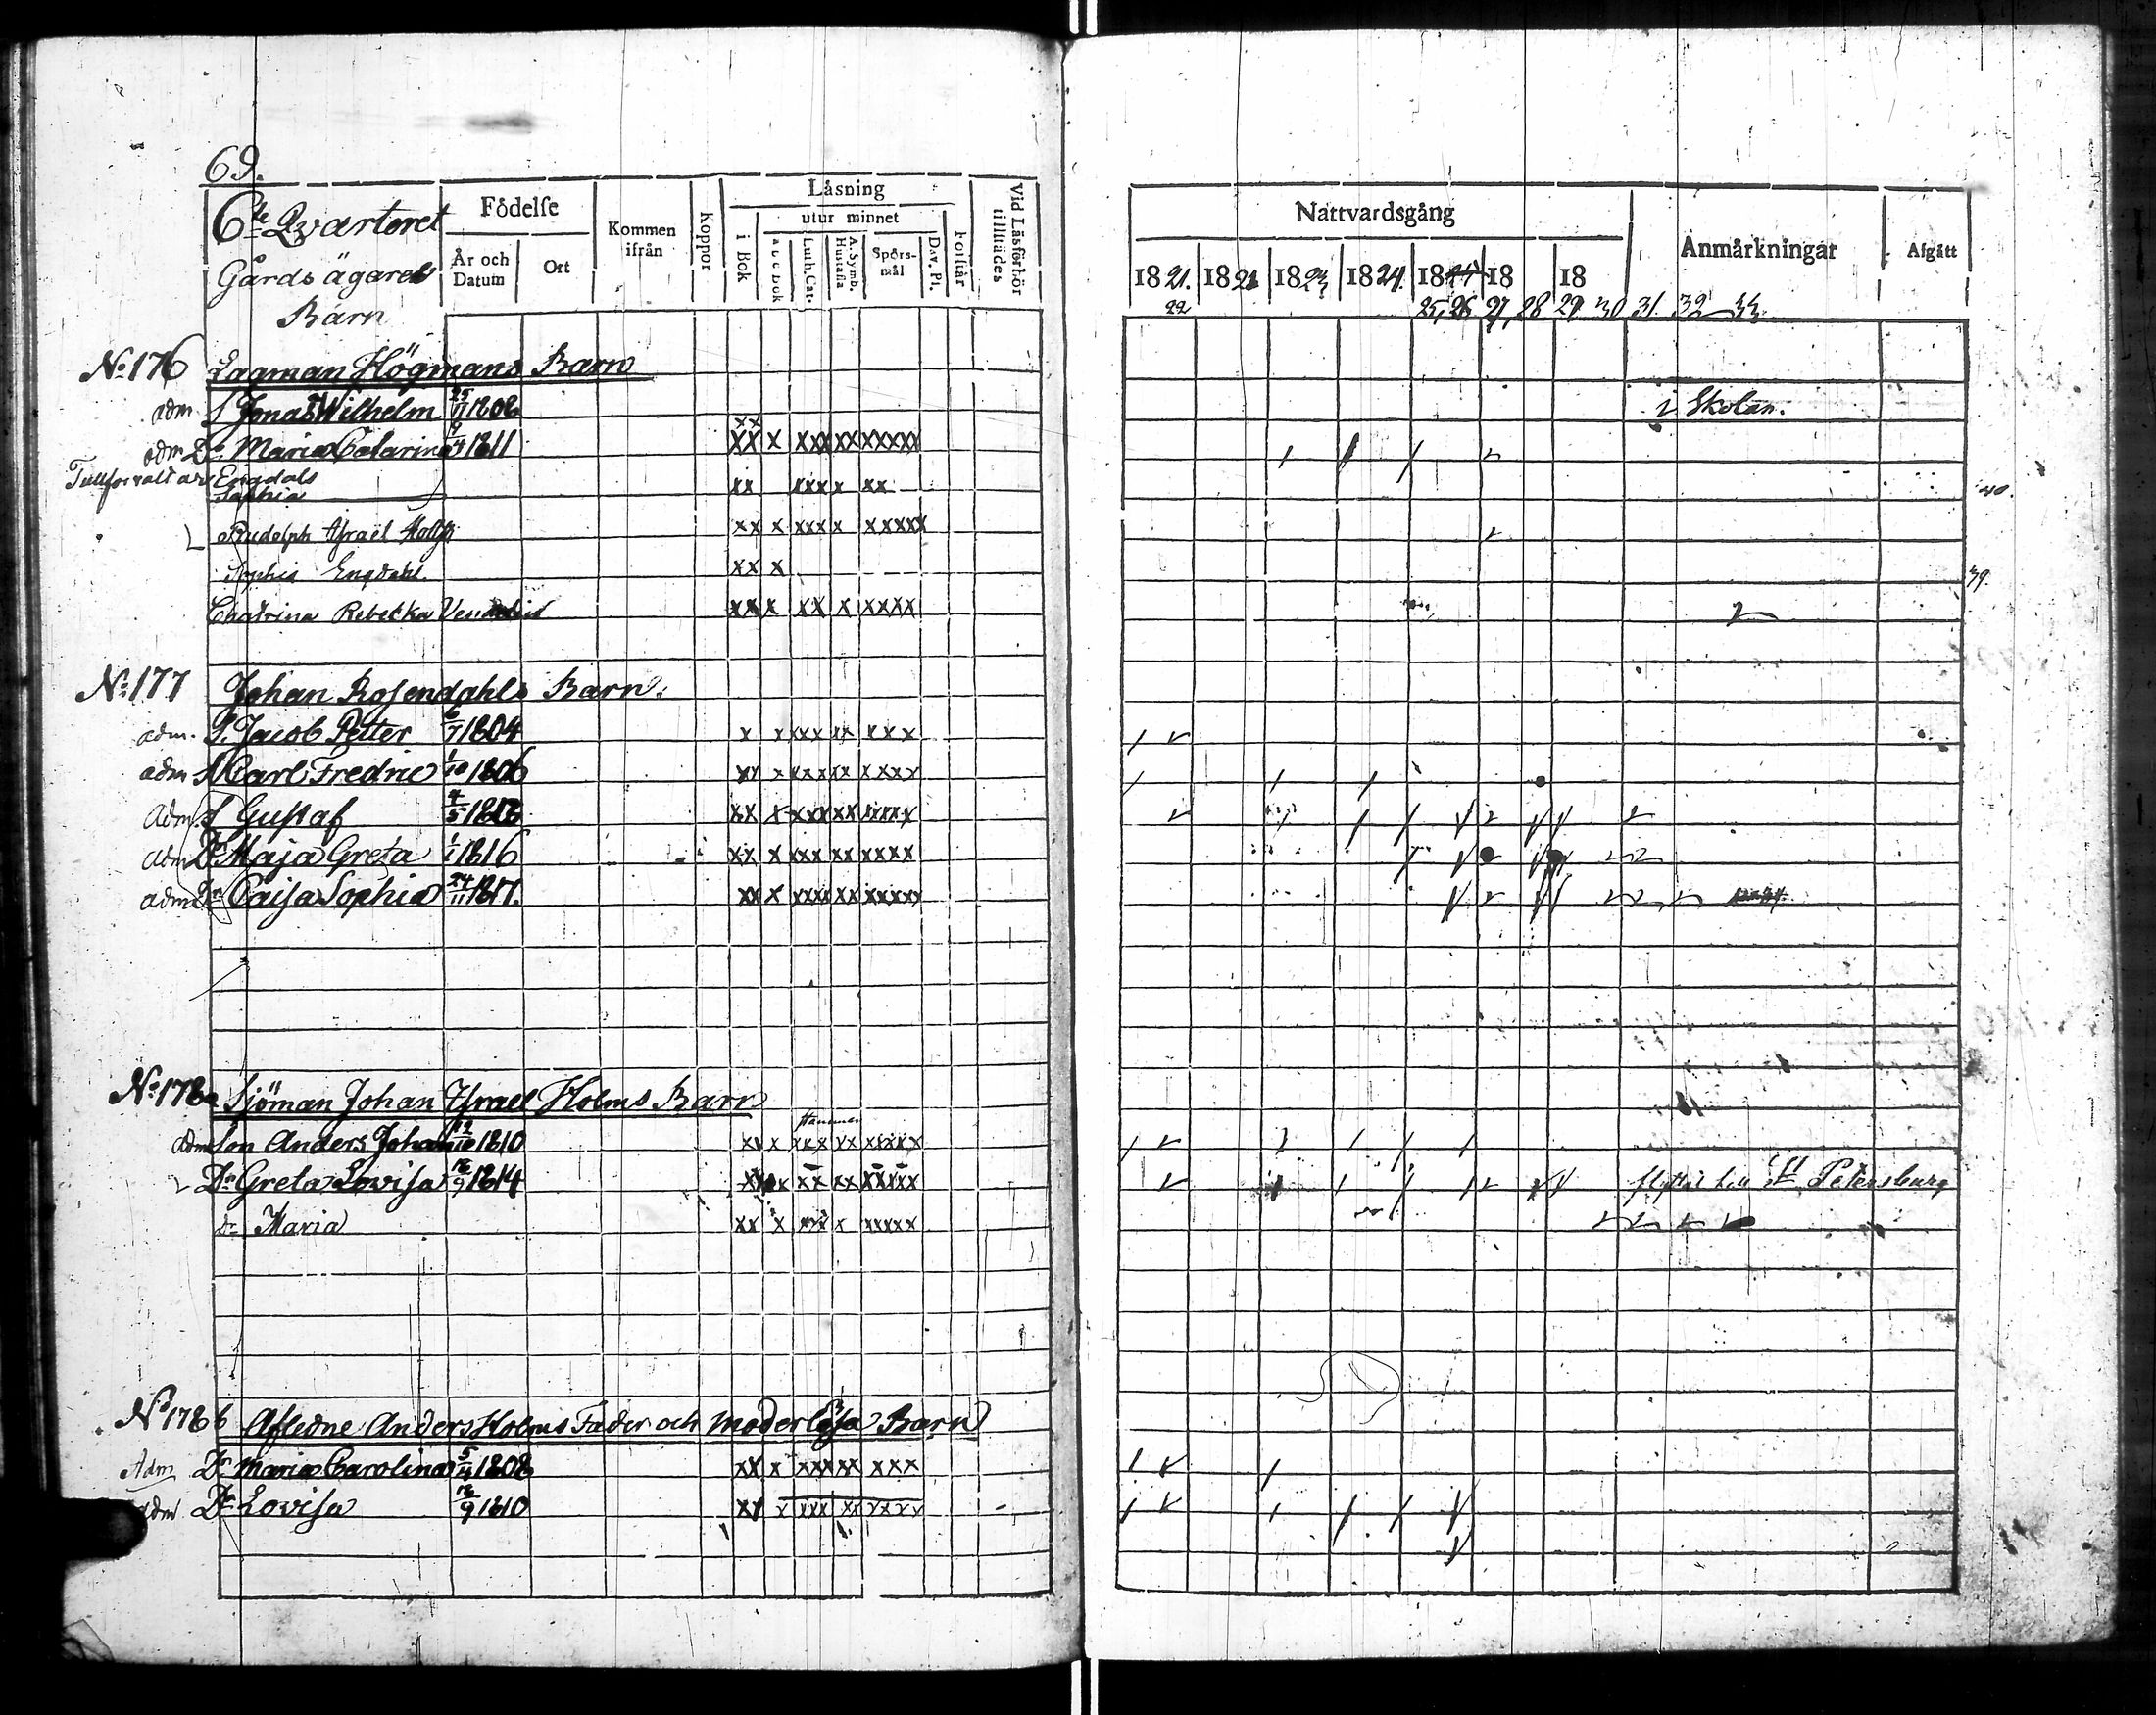 69.
6te Qvarteret
Gårds ägares
Barn
Födelse
År och Datum
Ort
Kommen ifrån
koppor
Låsning
i Bok
utur minnet
a b c Bok
Luth. Cat.
A. Symb. Hustafla
Spörs-mål
Dav. Ps.
Förstår
Vid Läsförhör tillstädes
Nattvardsgång
1821. 1822 1823 1824. 18 18 18
22 25, 26 27, 28 29 30 31. 32 33
Anmårkningar
Afgått
No 176 Lagman Högmans Barn
adm S Jonas Wilhelm 25/11 1808 i Skolan.
adm Dr Maria Catarina 9/4 1811 xx xx x xxx xx xxxxx
Tullförvaltare Engdals
Sophia xx xxx x xx 40.
Rudolph Israel Holm xx x xxx x xxxxx
Sophia Engdahl. xx x 39.
Chatrina Rebecka xx x xx x xxxx
No 177 Johan Rosendahls Barn.
adm. S. Jacob Petter 6/7 1804 x x xxx xx xxx
adm S Carl Fredric 1/10 1806 xx x xxx xx xxxx
Adm. S Gustaf 4/5 xx x xxx xx xxxx
adm Dr Maja Greta 1/1 1816 xx x xxx xx xxxx
adm Dr Caisa Sophia 24/11 1817. xx x xxx xx xxxxx
No 178 a Sjöman Johan Israel Holms Barn
adm Son Anders Johan 1810 xx x xxx xx xxxxx
Dr Greta Lovisa 16/9 1814 xx x xx xx xxxxx flyttat till St Petersburg
Dr Maria xx x xxx x xxxxx
No 178 b Afledne Anders Holms Fader och moderlösa Barn
Adm Dr Maria Carolina 5/4 1808 xx x xxx xx xxx
adm Dr Lovisa 16/9 1810 xx x xxx xx xxxx